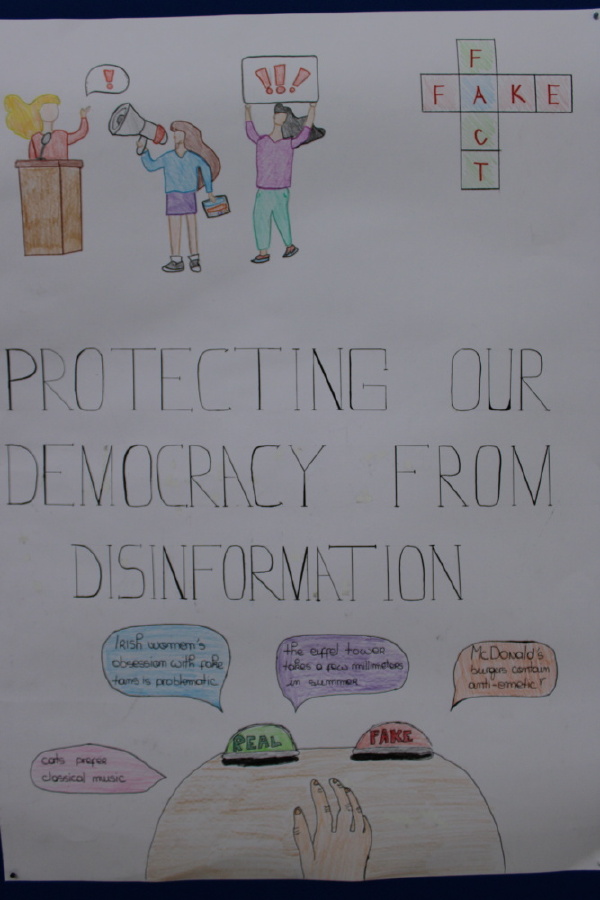 !
!!!
F
FAKE
C
T
PROTECTING OUR
DEMOCRACY FROM
DISINFORMATION
Irish women's
obsession with fake
tans is problematic
the eiffel tower
takes a few milimeters
in summer
McDonald's
burgers contain
anti-emetic
cats prefer
classical music
REAL
FAKE